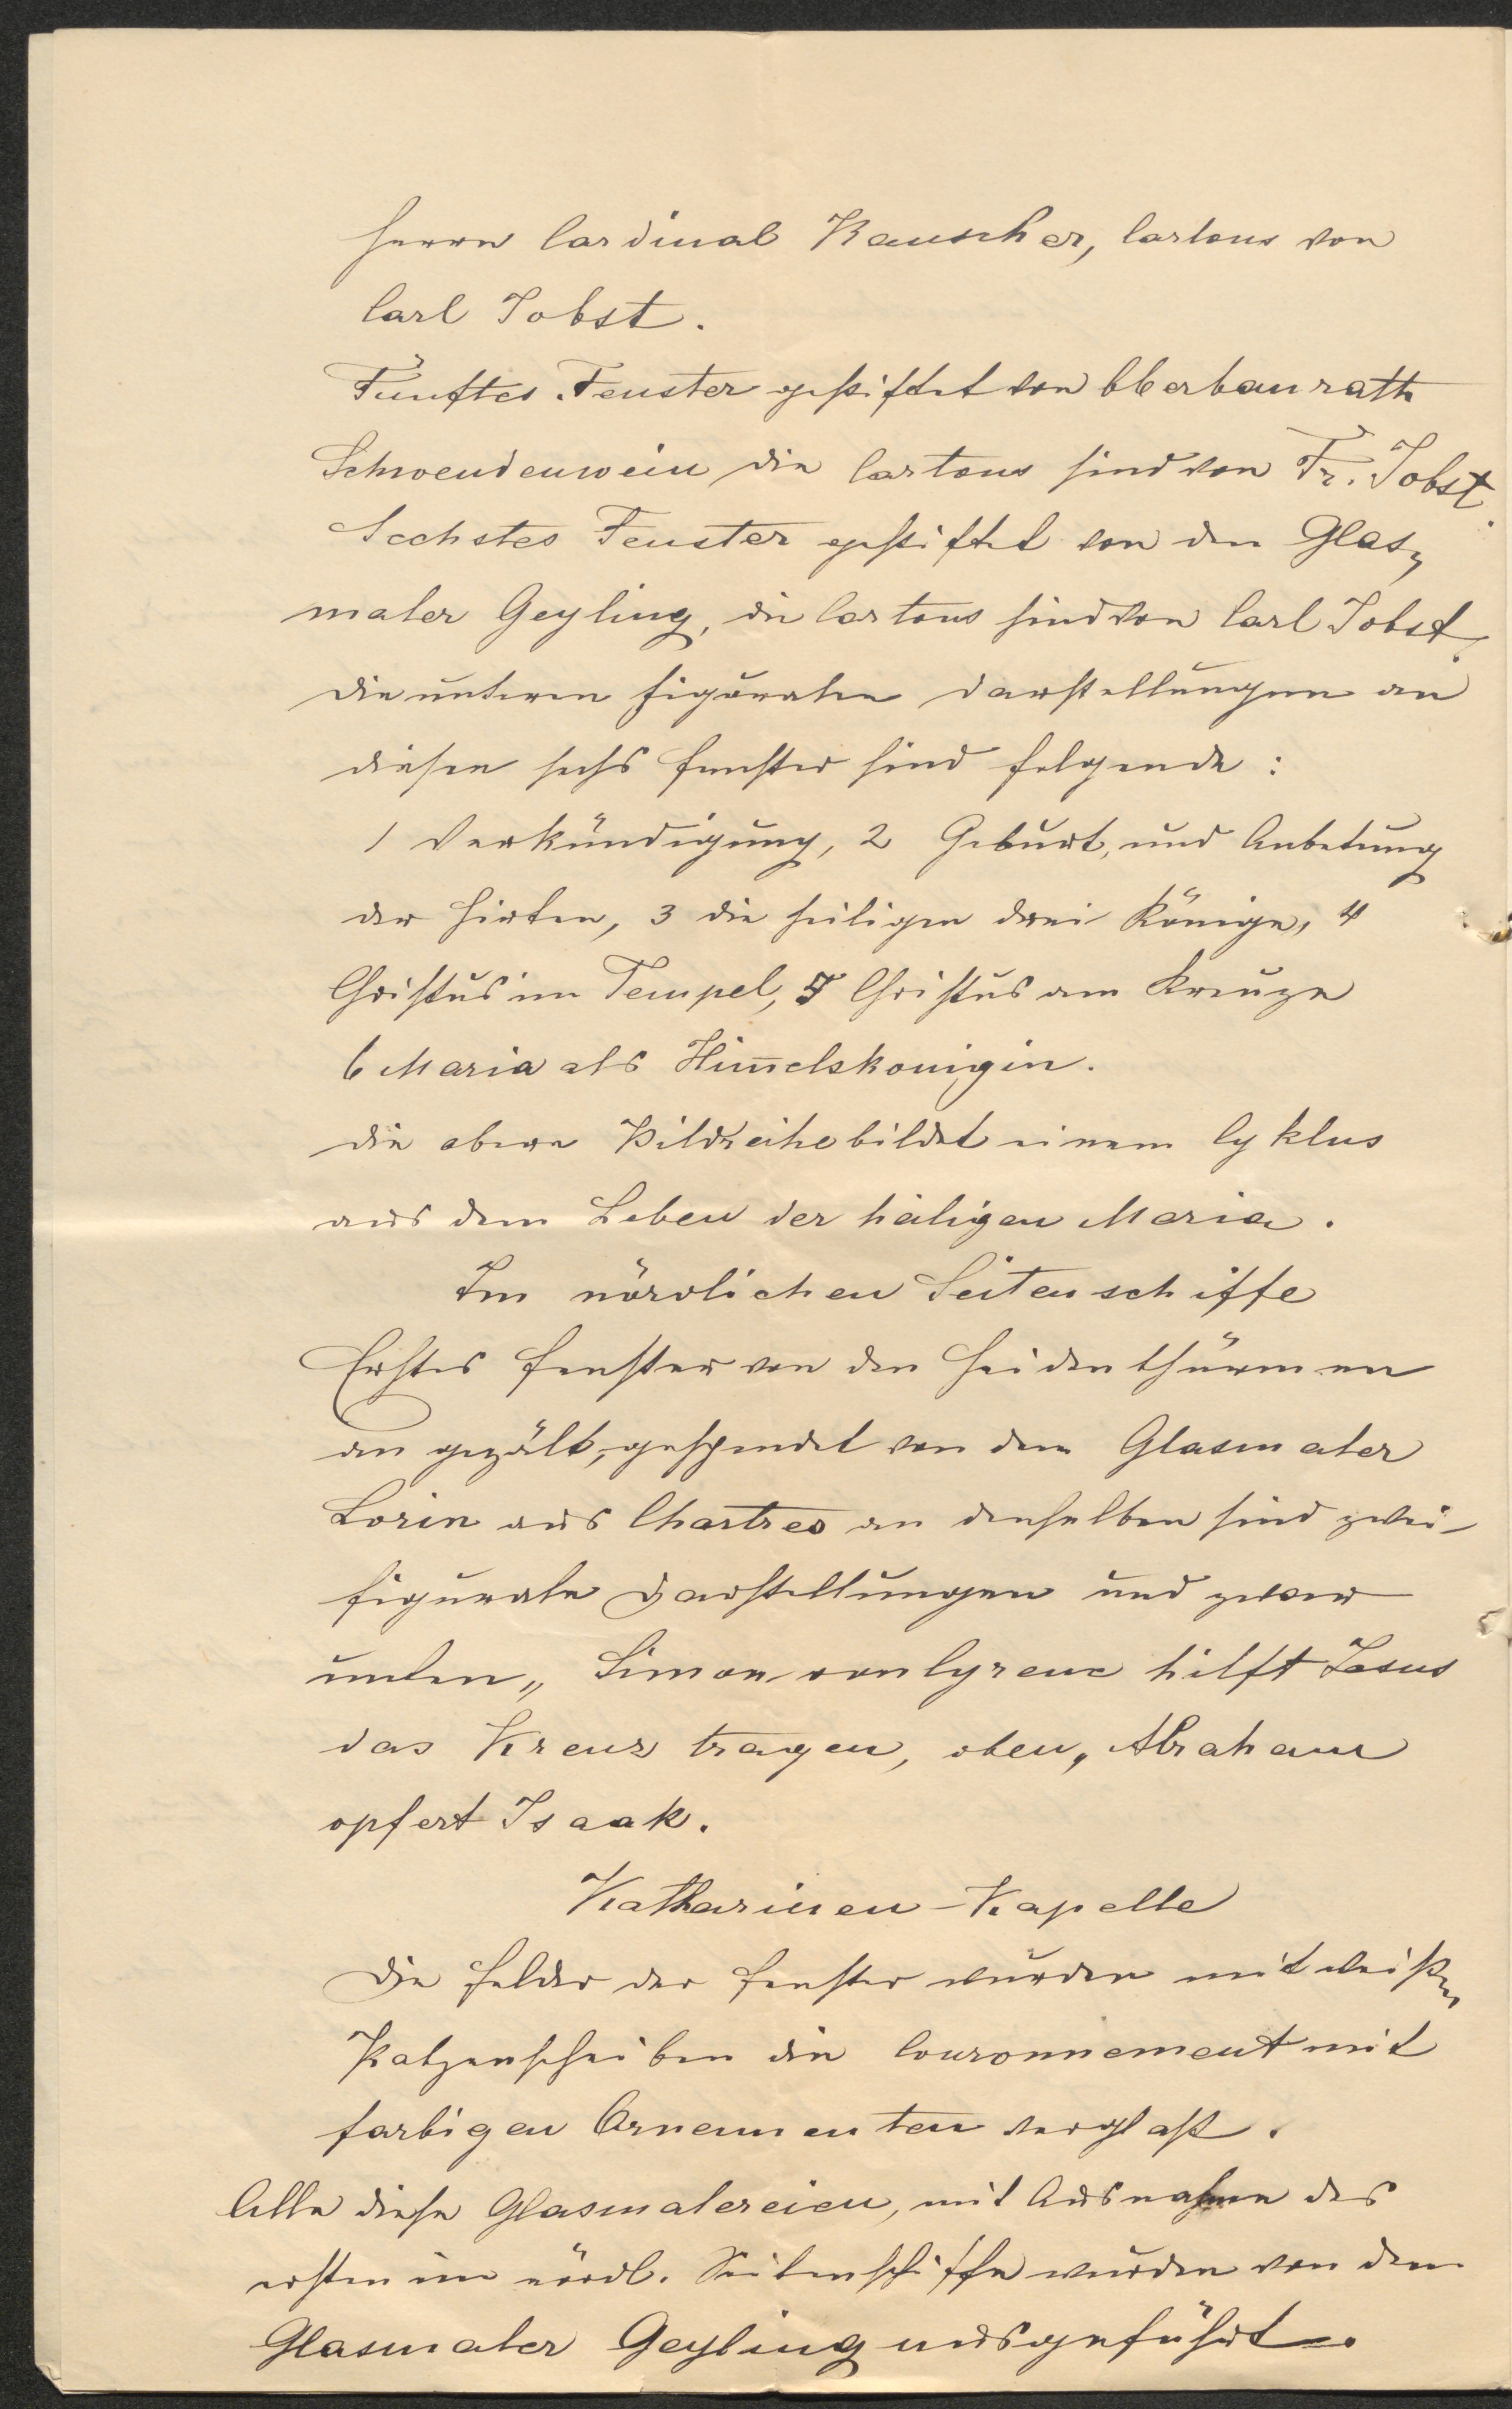 Herrn Cardinal Rauscher, Cartons von
Carl Jobst.
Fünftes Fenster gestiftet von Oberbaurath
Schwendenwein die Cartons sind von Fr. Jobst.
Sechstes Fenster gestiftet von den Glas-
maler Geyling, die Cartons sind von Carl Jobst,
die unteren figuralen Darstellungen an
diesen sechs Fenster sind folgende:
1 Verkündigung, 2 Geburt, und Anbetung
der Hirten, 3 die heiligen drei Könige, 4
Christus im Tempel, 5 Christus am Kreuze
6 Maria als Him̅elskonigin.
die obere Bildreihe bildet einem Cyklus
aus dem Leben der heiligen Maria.
Im nördlichen Seitenschiffe
Erstes Fenster von den Heidenthürmen
an gezält, gespendet von dem Glasmaler
Lorin aus Chartres an denselben sind zwei
figurale Darstellungen und zwar
unten „ Simon von Cyrene hilft Jesus
das Kreuz tragen, oben „ Abraham
opfert Isaak.
Katharinen-Kapelle
Die Felder der Fenster wurden mit weißen
Batzenscheiben die Couronnement mit
farbigen Ornamenten verglast.
Alle diese Glasmalereien, mit Ausnahme des
ersten im nördl. Seitenschiffe wurden von dem
Glasmaler Geyling ausgeführt.